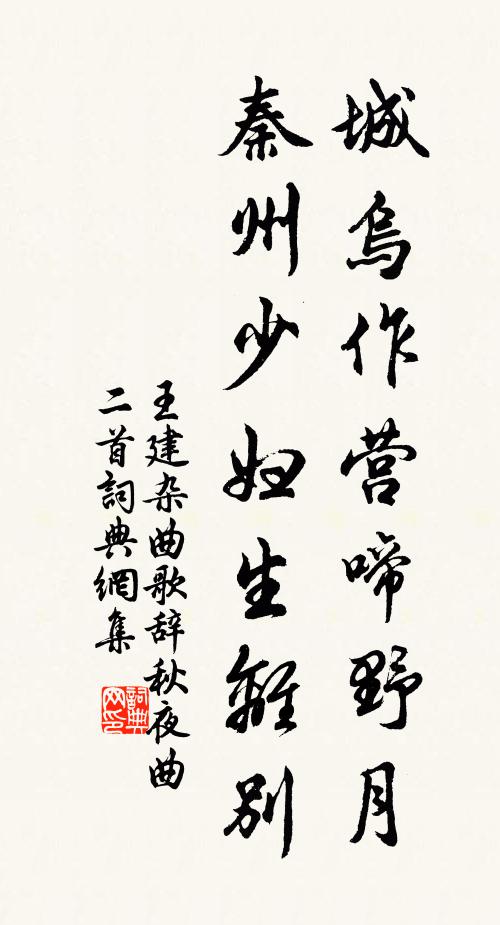 城烏作营啼野月
秦州少妇生離别
王建杂曲歌辞秋夜曲
二首詞典網集
詞典网印